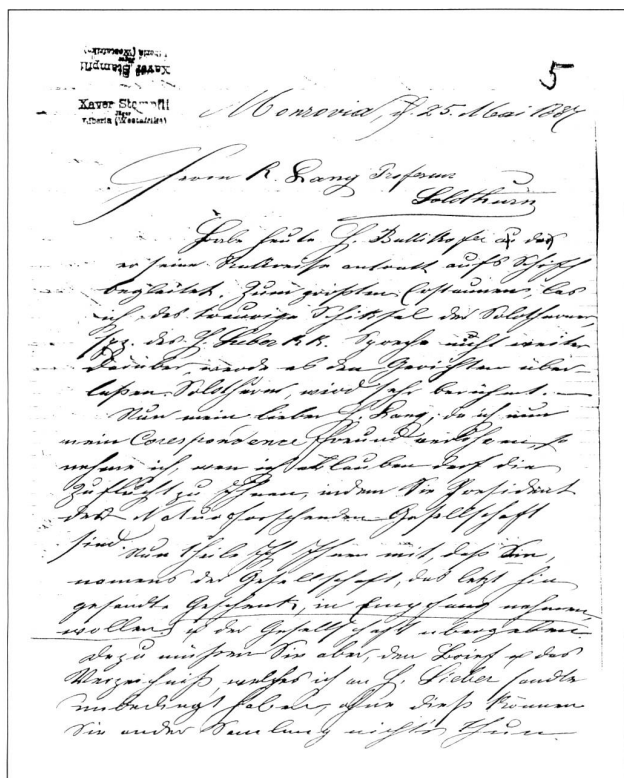 Xaver Stampfli
Jäger
Liberia (Westafrika)
Xaver Stampfli
Jäger
Liberia (Westafrika)
5
Monrovia, d. 25. Mai 1887
Herrn R. Lang Professor
Solothurn
Habe heute H. Büttikofer an der
er seine Rükreise antratt aufs Schiff
begleitet. Zum größten Erstaunen, las
ich, das traurige Schiksal der Solothurner,
spz. des H. Lieber KK. Spreche nicht weiter
darüber, werde es den Gerichten über
laßen Solothurn, wird sehr berühmt. —
Nun mein lieber H. Lang, da ich nun
mein Corespondence Freund verlohren, so
nehme ich, wen ich erlauben darf die
Zuflucht zu Ihnen, indem Sie President
der Naturforschenden Gesellschaft
sind. Nun theile ich Ihnen mit, daß Sie,
namens der Gesellschaft, das letzt hin
gesandte Geschenk, in Empfang nehmen,
wollen, u der Gesellschaft übergeben
dazu müssen Sie aber, den Brief u das
Verzeichniß, welches ich an H. Lieber sandte
unbedingt haben, ohne dieß können
Sie an der Samlung nichts thun